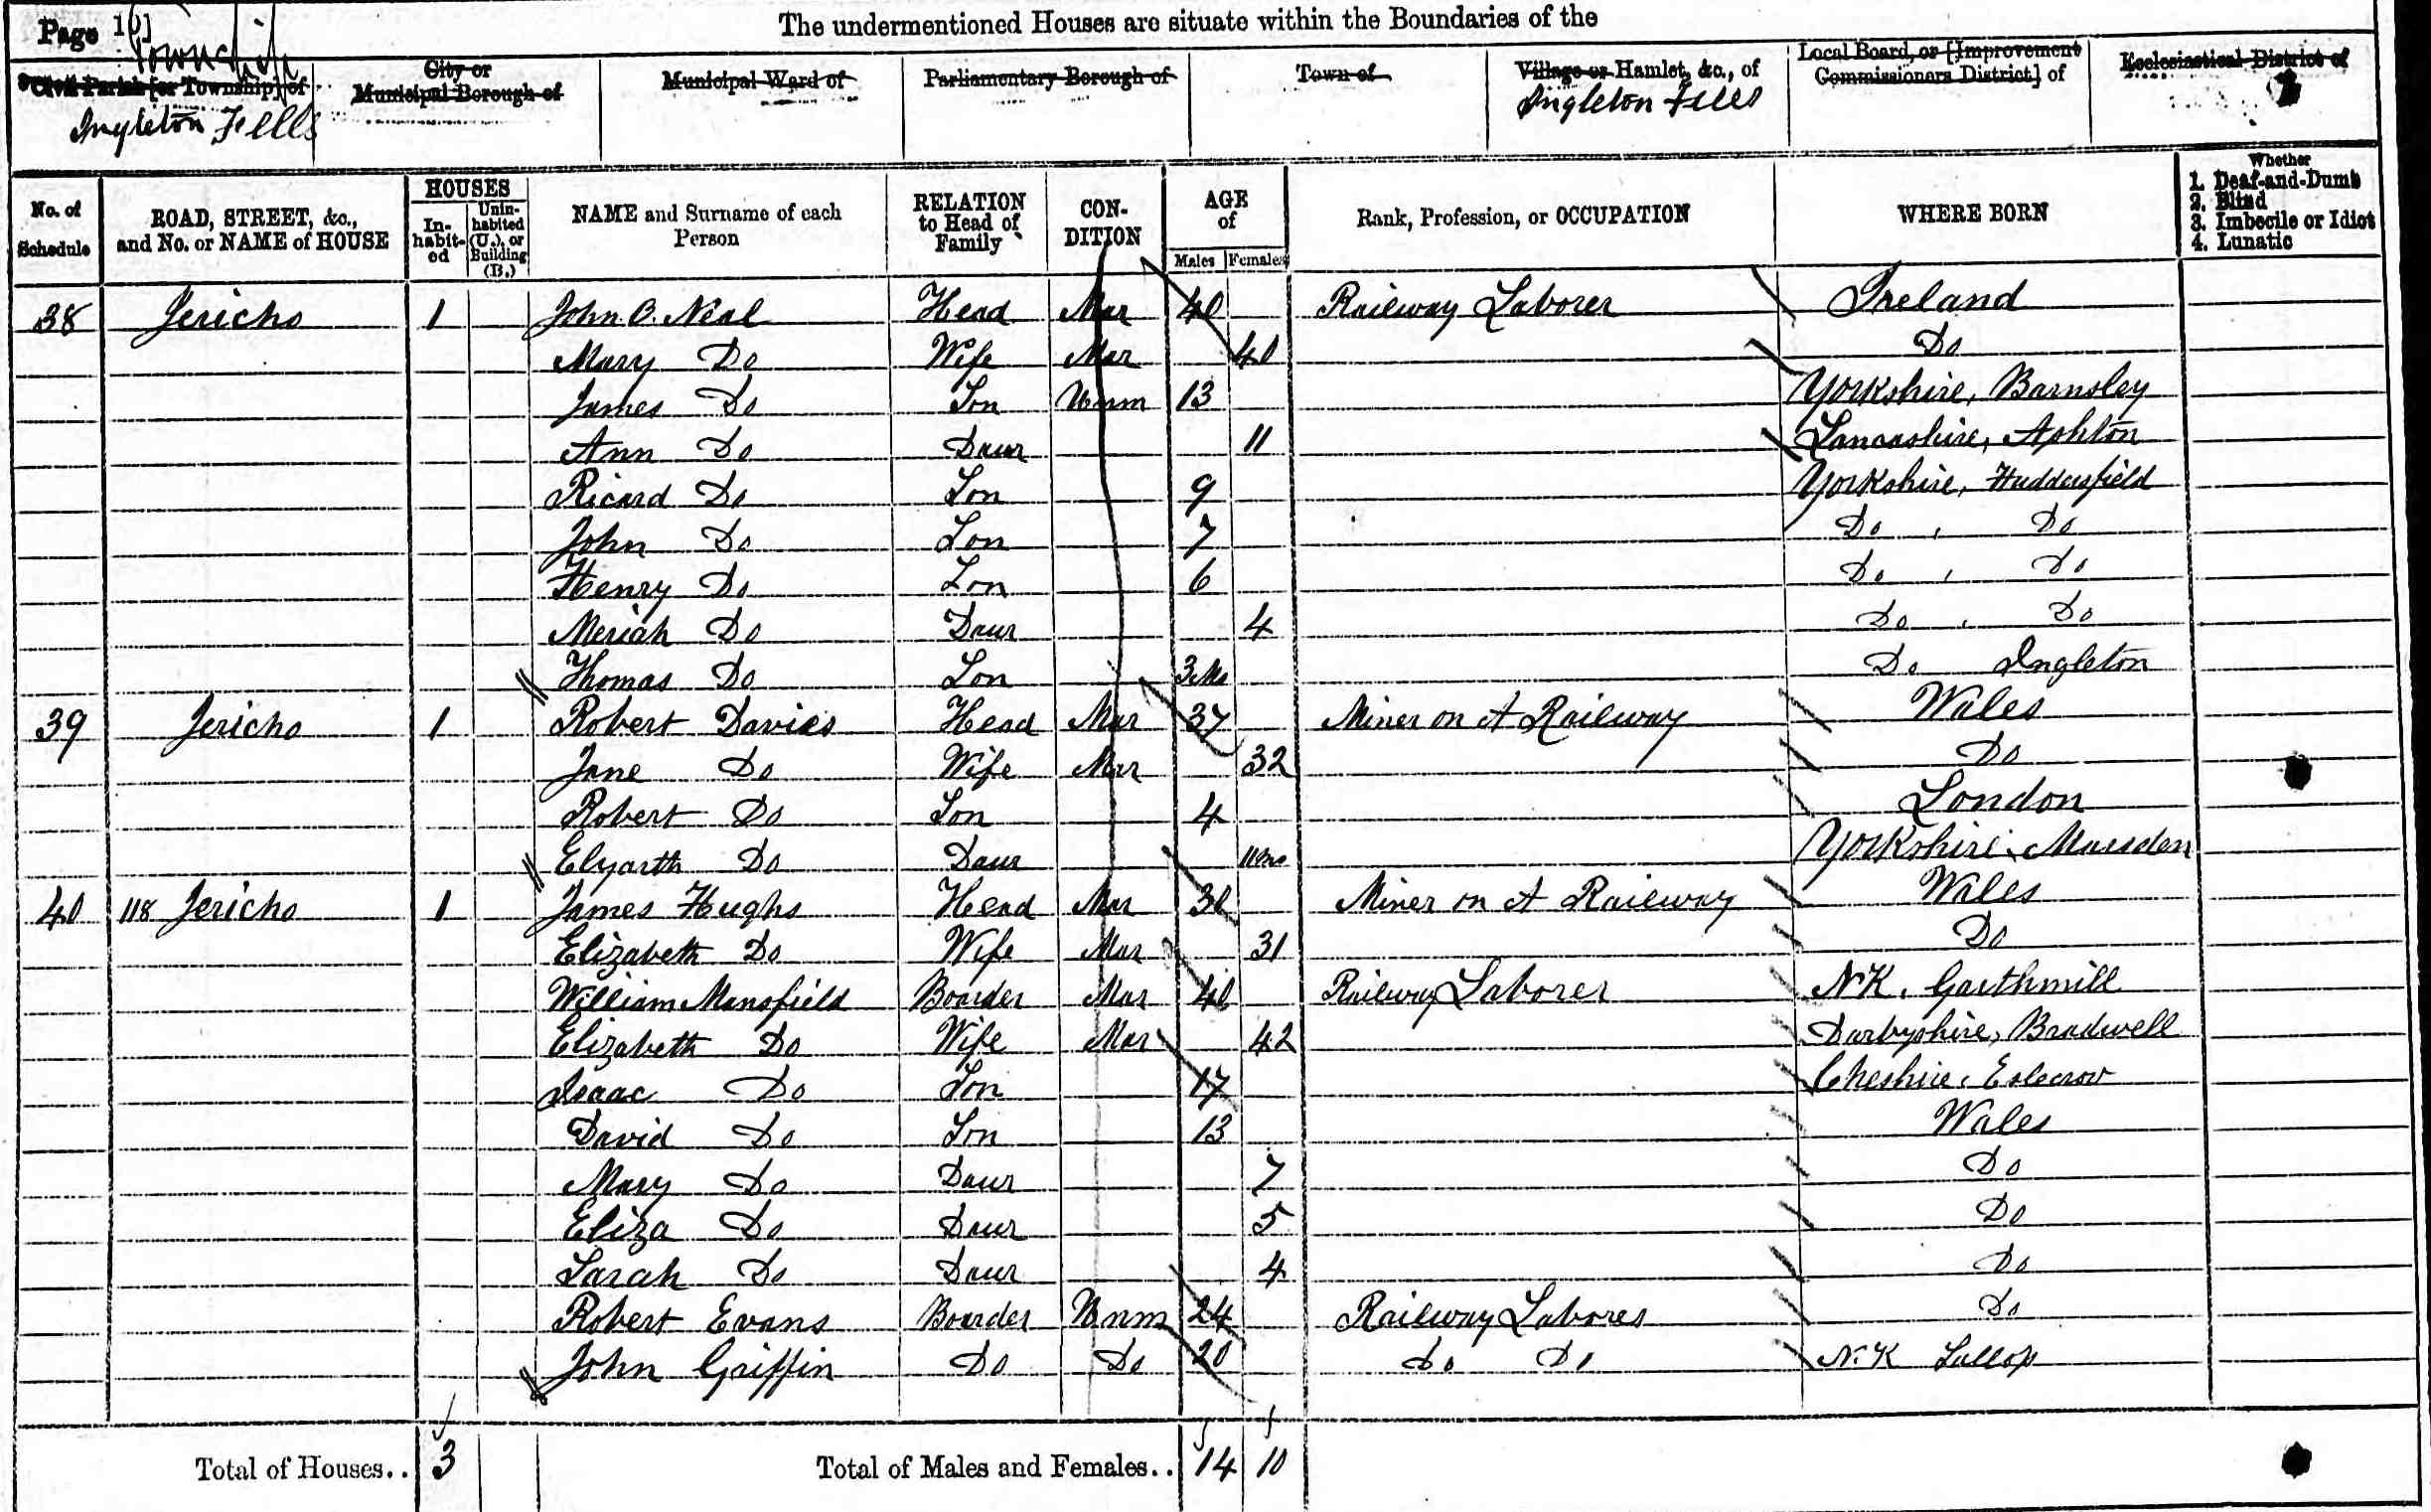 Page 10] The undermentioned Houses are situate within the Boundaries of the
Township
Civil Parish [or Township] of City or Municipal Borough of Municipal Ward of Parliamentary Borough of Town of Village or Hamlet, &c., of Local Board, or [Improvement Commissioners District] of Ecclesiastical District of
Ingleton Fells Ingleton Fells
No. of Schedule ROAD, STREET, &c., and No. or NAME of HOUSE HOUSES In-habit-ed Unin-habited (U.), or Building (B.) NAME and Surname of each Person RELATION to Head of Family CON-DITION AGE of Males Females Rank, Profession, or OCCUPATION WHERE BORN Whether 1. Deaf-and-Dumb 2. Blind 3. Imbecile or Idiot 4. Lunatic
38 Jericho 1 John O. Neal Head Mar 40 Railway Laborer Ireland
Mary Do Wife Mar 40 Do
James Do Son Unm 13 Yorkshire, Barnsley
Ann Do Daur 11 Lancashire, Ashton
Ricard Do Son 9 Yorkshire, Huddersfield
John Do Son 7 Do , Do
Henry Do Son 6 Do , Do
Meriah Do Daur 4 Do , Do
Thomas Do Son 3 Mo Do Ingleton
39 Jericho 1 Robert Davies Head Mar 37 Miner on A Railway Wales
Jane Do Wife Mar 32 Do
Robert Do Son 4 London
Elyarth Do Daur 11 mo Yorkshire, Marsden
40 118 Jericho 1 James Hughs Head Mar 30 Miner on A Railway Wales
Elizabeth Do Wife Mar 31 Do
William Mansfield Boarder Mar 40 Railway Laborer N.K. Garthmill
Elizabeth Do Wife Mar 42 Darbyshire, Bradwell
Isaac Do Son 17 Cheshire,
David Do Son 13 Wales
Mary Do Daur 7 Do
Eliza Do Daur 5 Do
Sarah Do Daur 4 Do
Robert Evans Boarder Unm 24 Railway Laborer Do
John Griffin Do Do 20 Do Do N.K Sallop
Total of Houses.. 3 Total of Males and Females.. 14 10